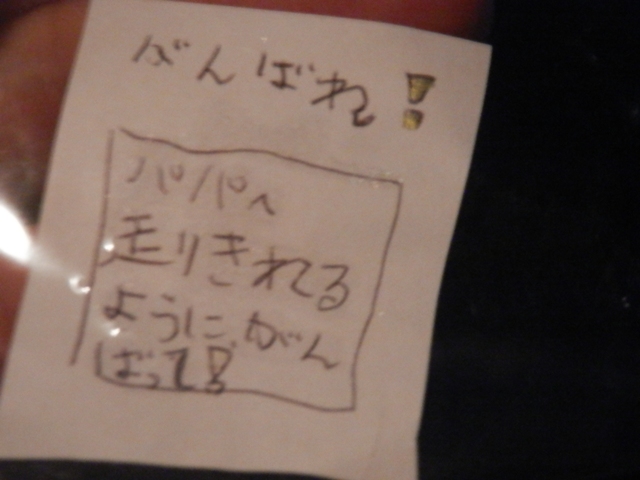 がんばれ!
パパへ
走りきれる
ように、がん
ばって!